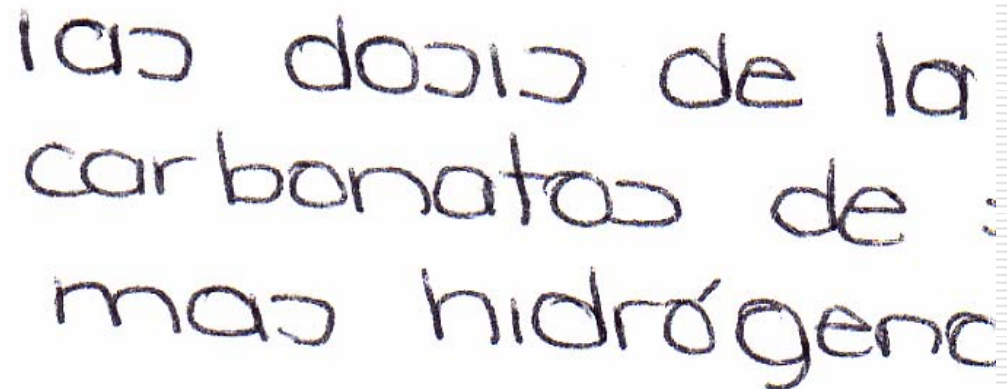 las dosis de la
carbonatos de
mas hidrógeno